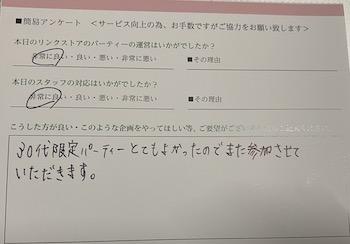 ■簡易アンケート　＜サービス向上の為、お手数ですがご協力をお願い致します＞
本日のリンクストアのパーティーの運営はいかがでしたか？
非常に良い・良い・悪い・非常に悪い　■その理由
本日のスタッフの対応はいかがでしたか？
非常に良い・良い・悪い・非常に悪い　■その理由
こうした方が良い・このような企画をやってほしい等、ご要望がござい
30代限定パーティーとてもよかったのでまた参加させて
いただきます。